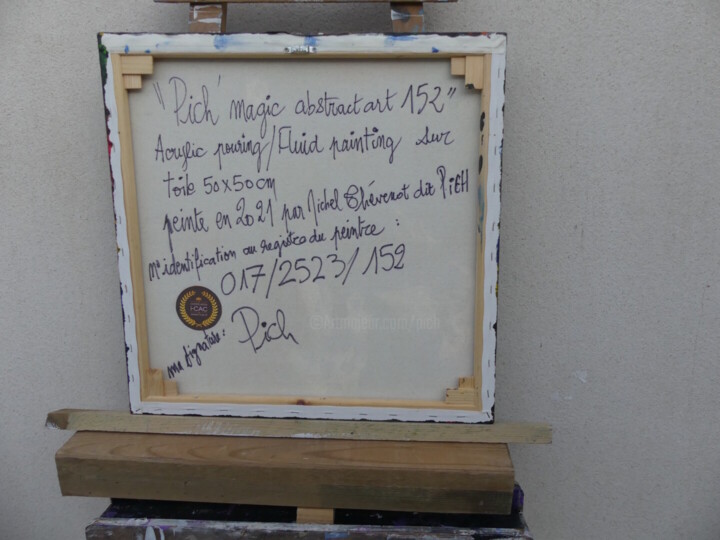 "Pich' magic abstract art 152"
Acrylic pouring/Fluid painting sur
toile 50x50cm
peinte en 2021 par Michel Thévenot dit PiCH
n° identification au registre du peintre :
017/2523/152
I-CAC
ma signature : Pich